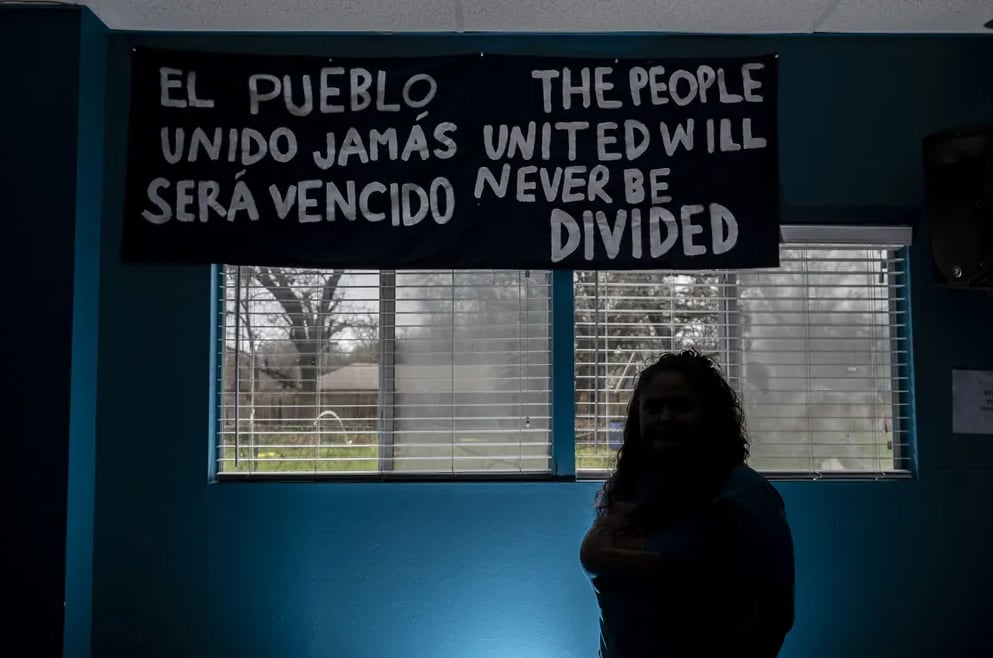 EL PUEBLO
UNIDO JAMÁS
SERÁ VENCIDO
THE PEOPLE
UNITED WILL
NEVER BE
DIVIDED